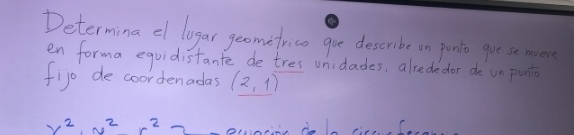 Determina el lugar geométrico que describe un punto que se mueve
en forma equidistante de tres unidades, alrededor de un punto
fijo de coordenadas (2,1)